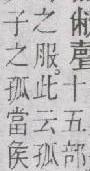 敝聲十五部
之服。此云孤
子之孤當矦